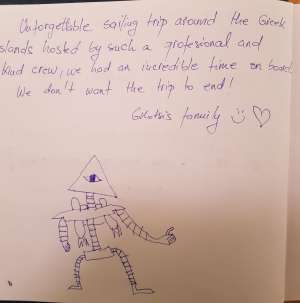 Unforgettable sailing trip around the Greek
slands hosted by such a profesional and
kind crew, we had an incredible time on board
We don't want the trip to end!
family